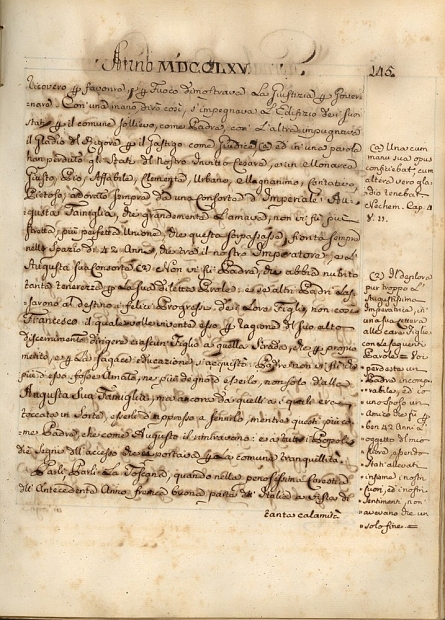 Anno MDCCLXV
145
Ricovero, e favore, e
Fuoco dimostrava La Giustizia
nava. Con una mano, dirò così, s'impegnava L'Edifizio dei suoi
Stati, e il comune sollievo, come Padre, con l'altra impugnava
il Gladio del Rigore, e il Gastigo come Giudice, ed in una parola
han perduto gli Stati del Nostro Invitto Cesare, un Monarca
Giusto, Pio, Affabile, Clemente, Urbano, e Magnanimo, Caritativo,
Pietoso, adorato sempre da una Consorte d'Imperiale Au-
gusta Famiglia, che grandemente L'amava, non vi fù più
stretta, più perfetta Unione, che questa sorpassasse, fiorita sempre
nello Spazio di 42 Anni, tra il nostro Imperatore, e L'
Augusta sua Consorte (2) Non vi fù Padre, che abbia nutrito
tanta tenerezza La sua diletta Prole: e se altri Padri las-
savano al destino i felici Progressi dei Loro Figli, non così
Francesco il quale volle in vece esso ragione del suo alto
discernimento dirigere ciascun Figlio a quella Strada, che
merito, e La sagace educazione s'acquistò: Padre non vi fù che
più di esso fosse Amato, ne più degno d'esserlo, non solo dalla
Augusta Sua Famiglia, ma ancora da quelli a i quali era
toccato in Sorte, esserli d'appresso a servirlo, mentre questi più co-
me Padre, che come Augusto il rimiravano: e a tutti i Popoli
diè Segni dell'accesso che portava La comune tranquillità.
Parli, Parli La Toscana, quando nella penosissima Carestia
dell'Antecedente Anno, fremea buona parte dell'Italia a vista di
tanta calamità
(1) Una cum
manu sua opus
construebat, cum
altera vero gla-
dio tenebat
Cap. 4
V. 17.
(2) Il deplora
pur troppo L'
Augustissima
Imperatrice, in
una sua lettera
alle care Figlie
con le seguenti
Parole = Voi
perdeste un
Padre incompa-
rabile, ed io
uno sposo un
Amico che fù
ben 42 Anni
oggetto del mio
Core, avendo
Stati allevati
insieme i nostri
Cuori, ed i nostri
Sentimenti non
avevano che un
solo fine =